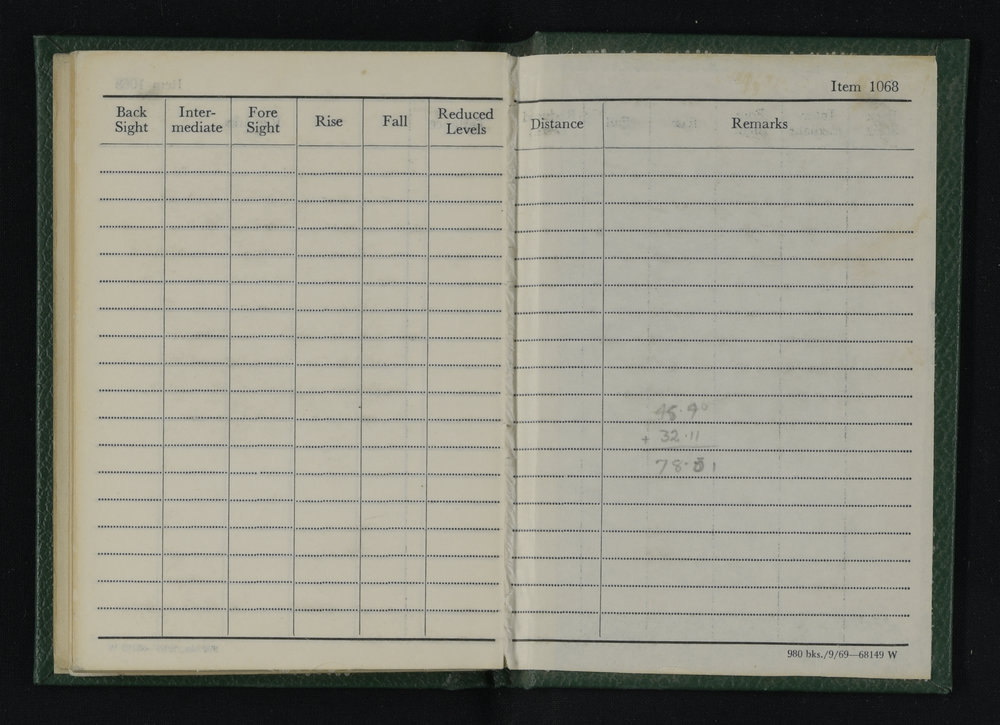 Back Sight Inter-mediate Fore Sight Rise Fall Reduced Levels
Item 1068
Distance Remarks
+ 32.11
78.01
980 bks./9/69—68149 W